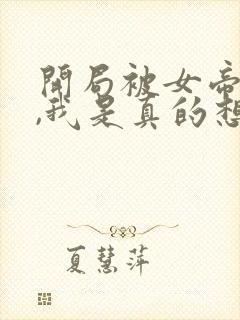 開局被女帝
,我是真的想
夏慧萍